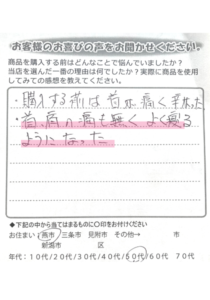 お客様のお喜びの声をお聞かせください
商品を購入する前はどんなことで悩んでいましたか？
当店を選んだ一番の理由は何でしたか？実際に商品を使用
してみての感想を教えてください。
・購入する前は首が痛く辛かった
・首痛の痛も無く よく寝る
ようになった
◆下記の中から当てはまるものに○印をお付けください
お住まい：燕市 三条市 見附市 その他→ 市
新潟市 区
年代：10代/20代/30代/40代/50代/60代 70代